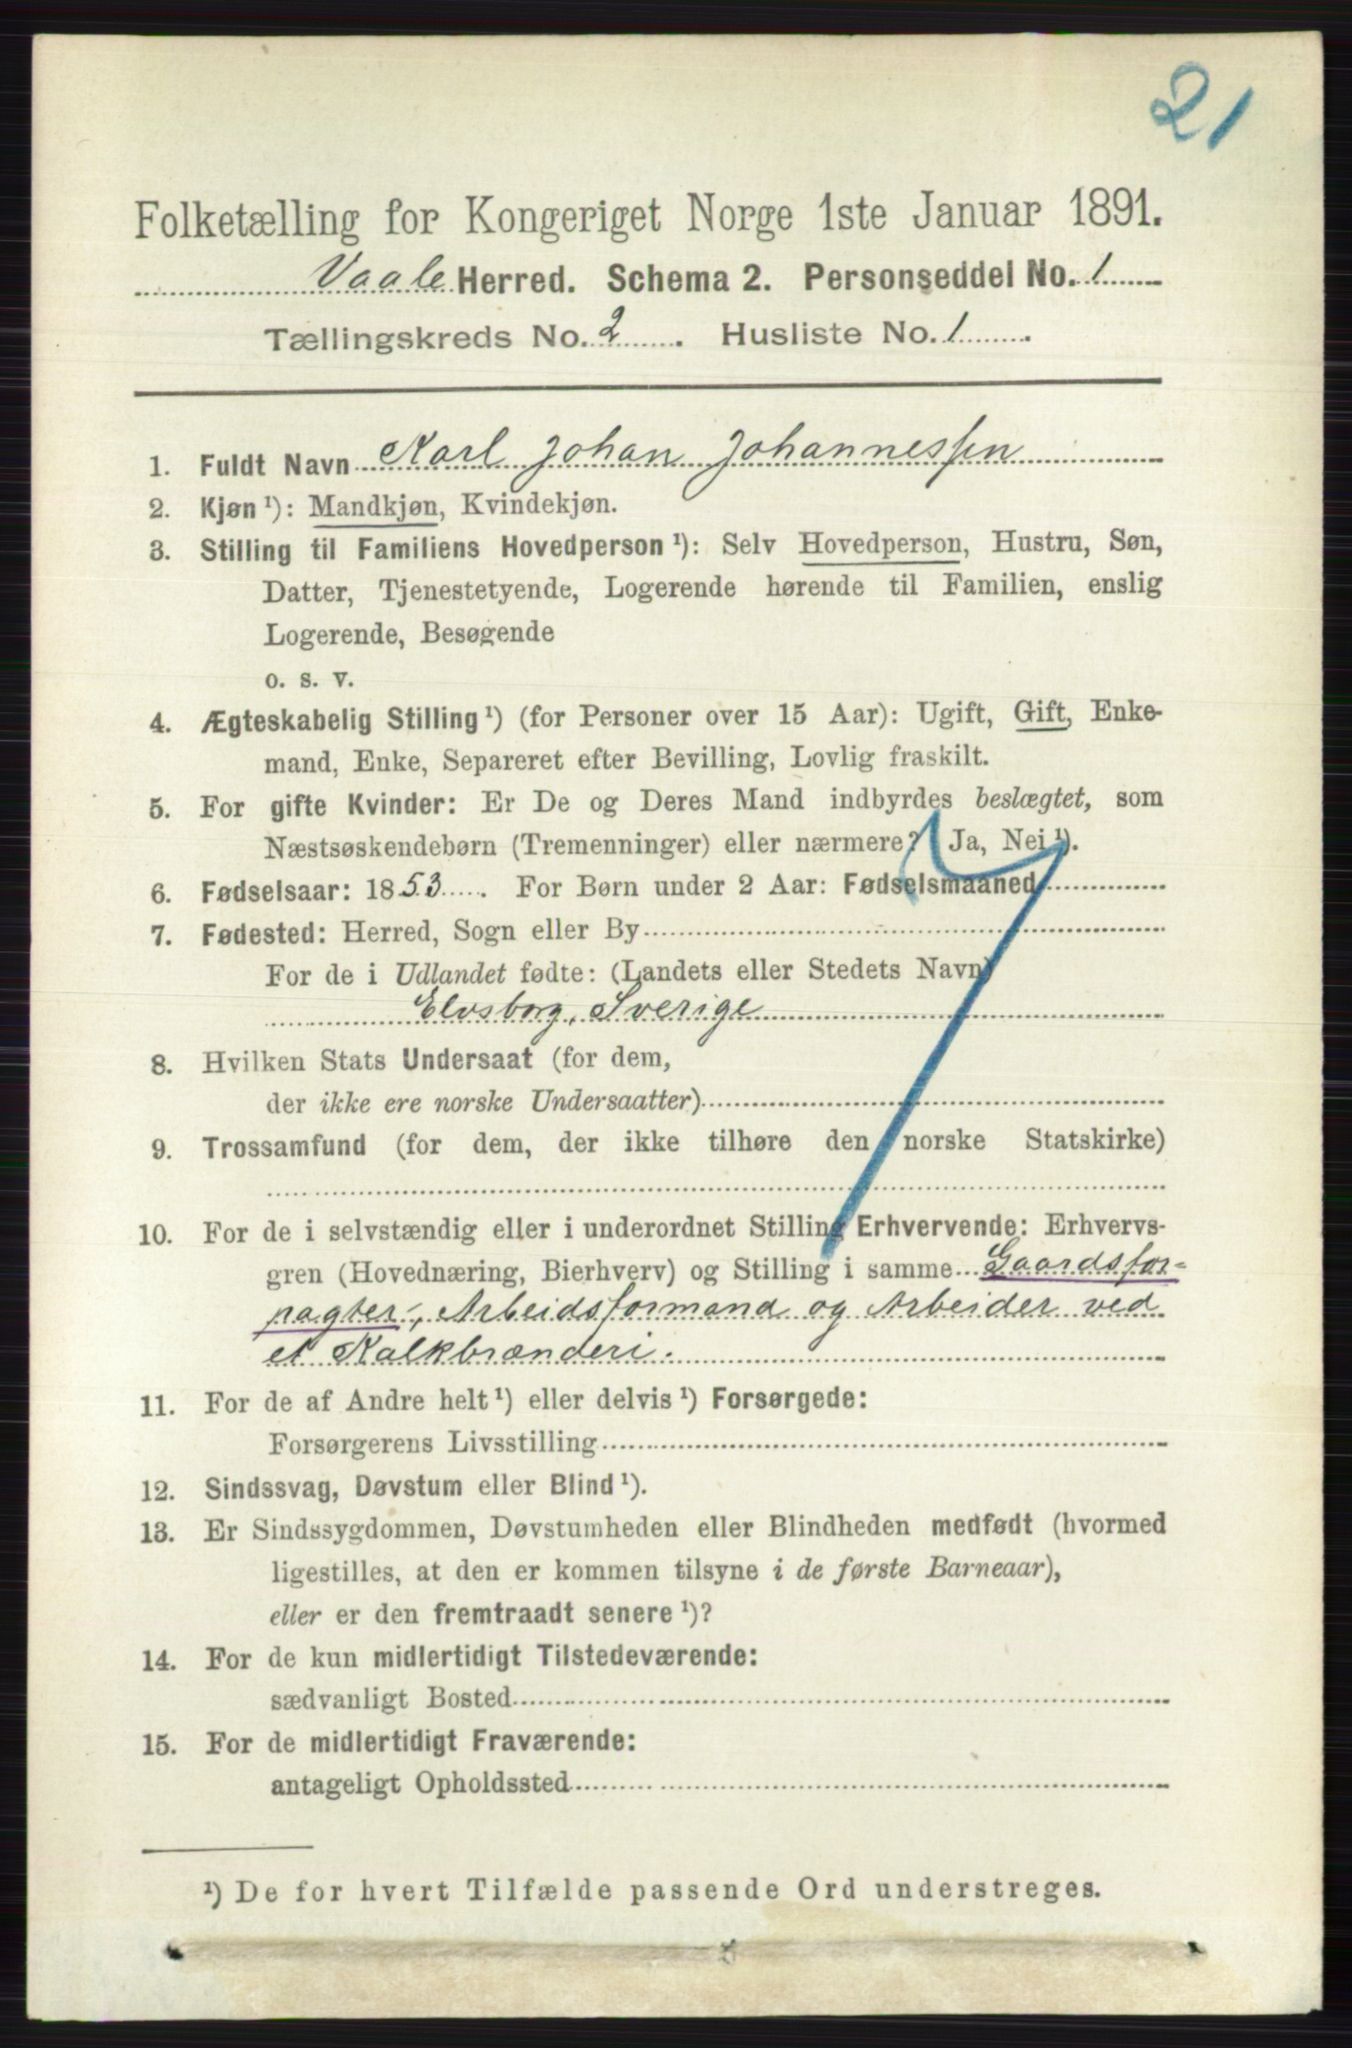 21
Folketælling for Kongeriget Norge 1ste Januar 1891.
Vaale Herred. Schema 2. Personseddel No. 1
Tællingskreds No. 2. Husliste No. 1.
1. Fuldt Navn Karl Johan Johannessen
2. Kjøn ¹): Mandkjøn, Kvindekjøn.
3. Stilling til Familiens Hovedperson ¹): Selv Hovedperson, Hustru, Søn,
Datter, Tjenestetyende, Logerende hørende til Familien, enslig
Logerende, Besøgende
o. s. v.
4. Ægteskabelig Stilling ¹) (for Personer over 15 Aar): Ugift, Gift, Enke-
mand, Enke, Separeret efter Bevilling, Lovlig fraskilt.
5. For gifte Kvinder: Er De og Deres Mand indbyrdes beslægtet, som
Næstsøskendebørn (Tremenninger) eller nærmere? Ja, Nei ¹).
6. Fødselsaar: 1853. For Børn under 2 Aar: Fødselsmaaned
7. Fødested: Herred, Sogn eller By
For de i Udlandet fødte: (Landets eller Stedets Navn)
Elvsborg, Sverige
8. Hvilken Stats Undersaat (for dem,
der ikke ere norske Undersaatter)
9. Trossamfund (for dem, der ikke tilhøre den norske Statskirke)
10. For de i selvstændig eller i underordnet Stilling Erhvervende: Erhvervs-
gren (Hovednæring, Bierhverv) og Stilling i samme Gaardsfor-
pagter, Arbeidsformand og Arbeider ved
et Kalkbrænderi.
11. For de af Andre helt ¹) eller delvis ¹) Forsørgede:
Forsørgerens Livsstilling
12. Sindssvag, Døvstum eller Blind ¹).
13. Er Sindssygdommen, Døvstumheden eller Blindheden medfødt (hvormed
ligestilles, at den er kommen tilsyne i de første Barneaar),
eller er den fremtraadt senere ¹)?
14. For de kun midlertidigt Tilstedeværende:
sædvanligt Bosted
15. For de midlertidigt Fraværende:
antageligt Opholdssted
¹) De for hvert Tilfælde passende Ord understreges.